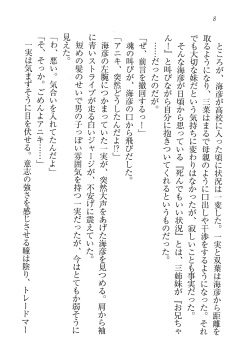 8
ところが、海彦が高校に入った頃に状況は一変した。一実と双葉は海彦から距離を
取るようになり、三葉はまるで母親のように口出しや干渉をするようになった。それ
でも大切な妹だという気持ちに変わりはなかったが、寂しいことも事実だった。
そんな海彦が日頃から思っている『死んでもいい状況』とは、三姉妹が『お兄ちゃ
ん！』と叫びながら自分に抱きついてくれるというものだった。
……だったのだが。
「ぜ、前言を撤回するっ！」
魂の叫びが、海彦の口から飛びだした。
「アニキ、突然どうしたんだよ!?」
海彦の左腕につかまっていた一実が、突然大声をあげた海彦を見つめる。肩から袖
に青いストライプが走る白いジャージが、不安げに震えていた。
短めの髪のせいで男の子っぽい雰囲気を持つ一実だったが、今はとても弱そうに
見えた。
「わ、悪い。気合いを入れてたんだよ」
「そ、そっか。ごめんよアニキ……」
一実は気まずそうに目を伏せる。意志の強さを感じさせる瞳は陰り、トレードマー